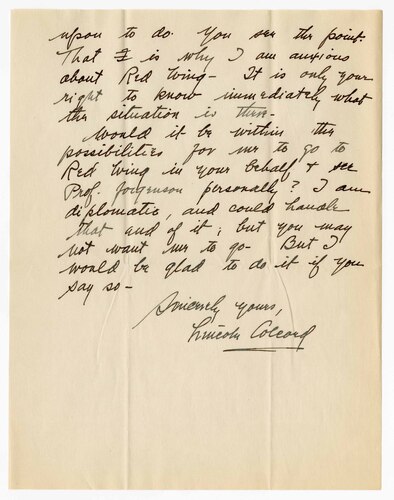 upon to do. You see the point.
That I is why I am anxious
about Red Wing — It is only your
right to know immediately what
the situation is there —
Would it be within the
possibilities for me to go to
Red Wing in your behalf, & see
Prof. Jorgenson personally? I am
diplomatic, and could handle
that end of it; but you may
not want me to go — But I
would be glad to do it if you
say so —
Sincerely yours,
Lincoln Colcord